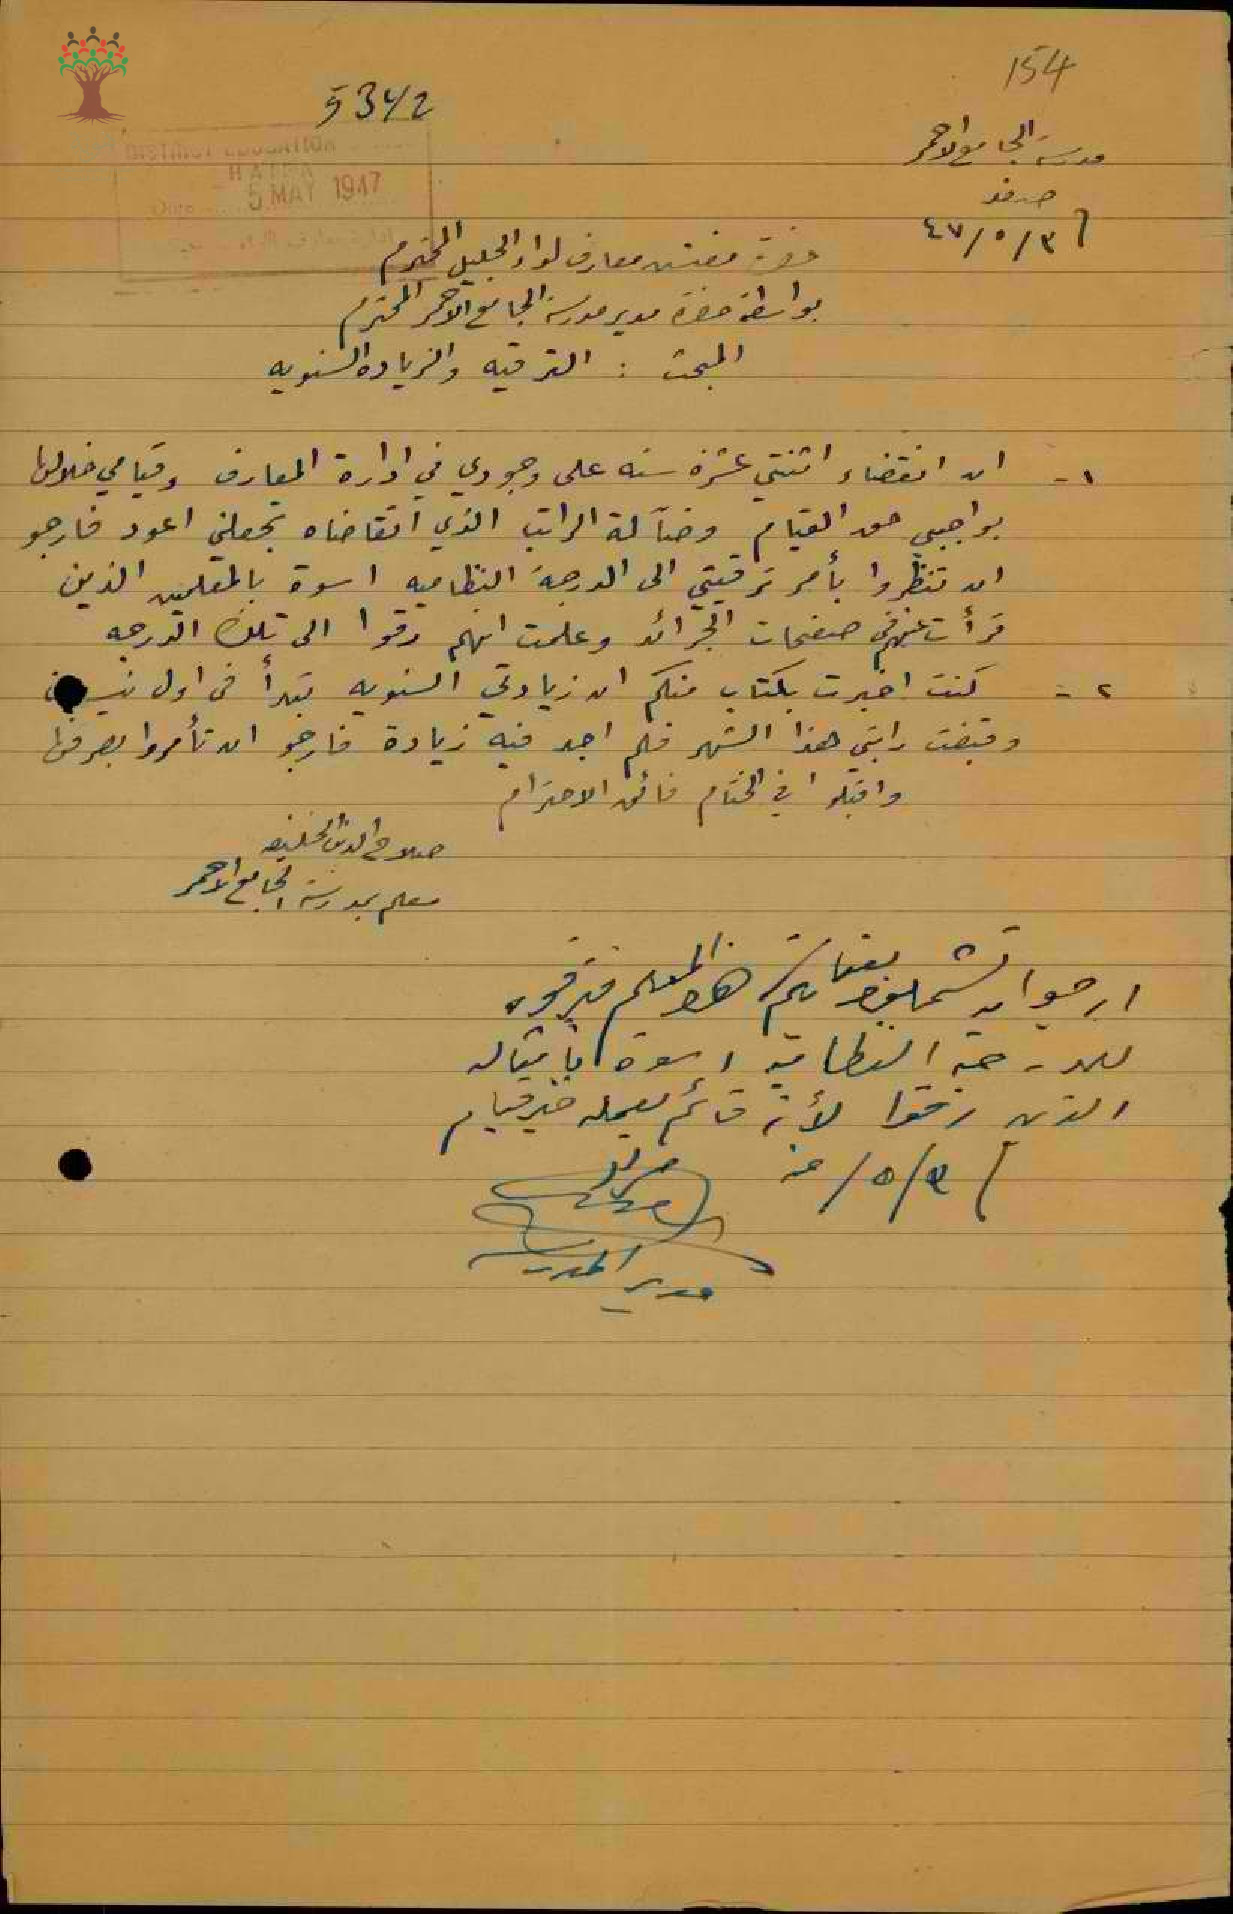 154
5342
DISTRICT EDUCATION
HAIFA
5 MAY 1947
مدرسة الجامع الاحمر
صفد
٤٧/٥/٣
حضرة مفتش معارف لواء الجليل المحترم
بواسطة حضرة مدير مدرسة الجامع الاحمر المحترم
المبحث : الترقيه والزياده السنويه
١ - ان انقضاء اثنتي عشرة سنه على وجودي في ادارة المعارف وقيامي خلالها
بواجبي حق القيام وضآلة الراتب الذي اتقاضاه تجعلني اعود فارجو
ان تنظروا بأمر ترقيتي الى الدرجة النظاميه اسوة بالمعلمين الذين
قرأت عنهم في صفحات الجرائد وعلمت انهم رقوا الى تلك الدرجه
٢ - كنت اخبرت بكتاب منكم ان زيادتي السنويه تبدأ في اول نيسان
وقبضت راتبي هذا الشهر فلم اجد فيه زيادة فارجو ان تأمروا بصرفها
واقبلوا في الختام فائق الاحترام
صلاح الدين الخليفه
معلم بمدرسة الجامع الاحمر
ارجو ان تشملوا بعنايتكم هذا المعلم فترقوه
للدرجة النظاميه اسوة بامثاله
الذين رقوا لأنه قائم بعمله خير قيام
٥/٣/
مدير المدرسة